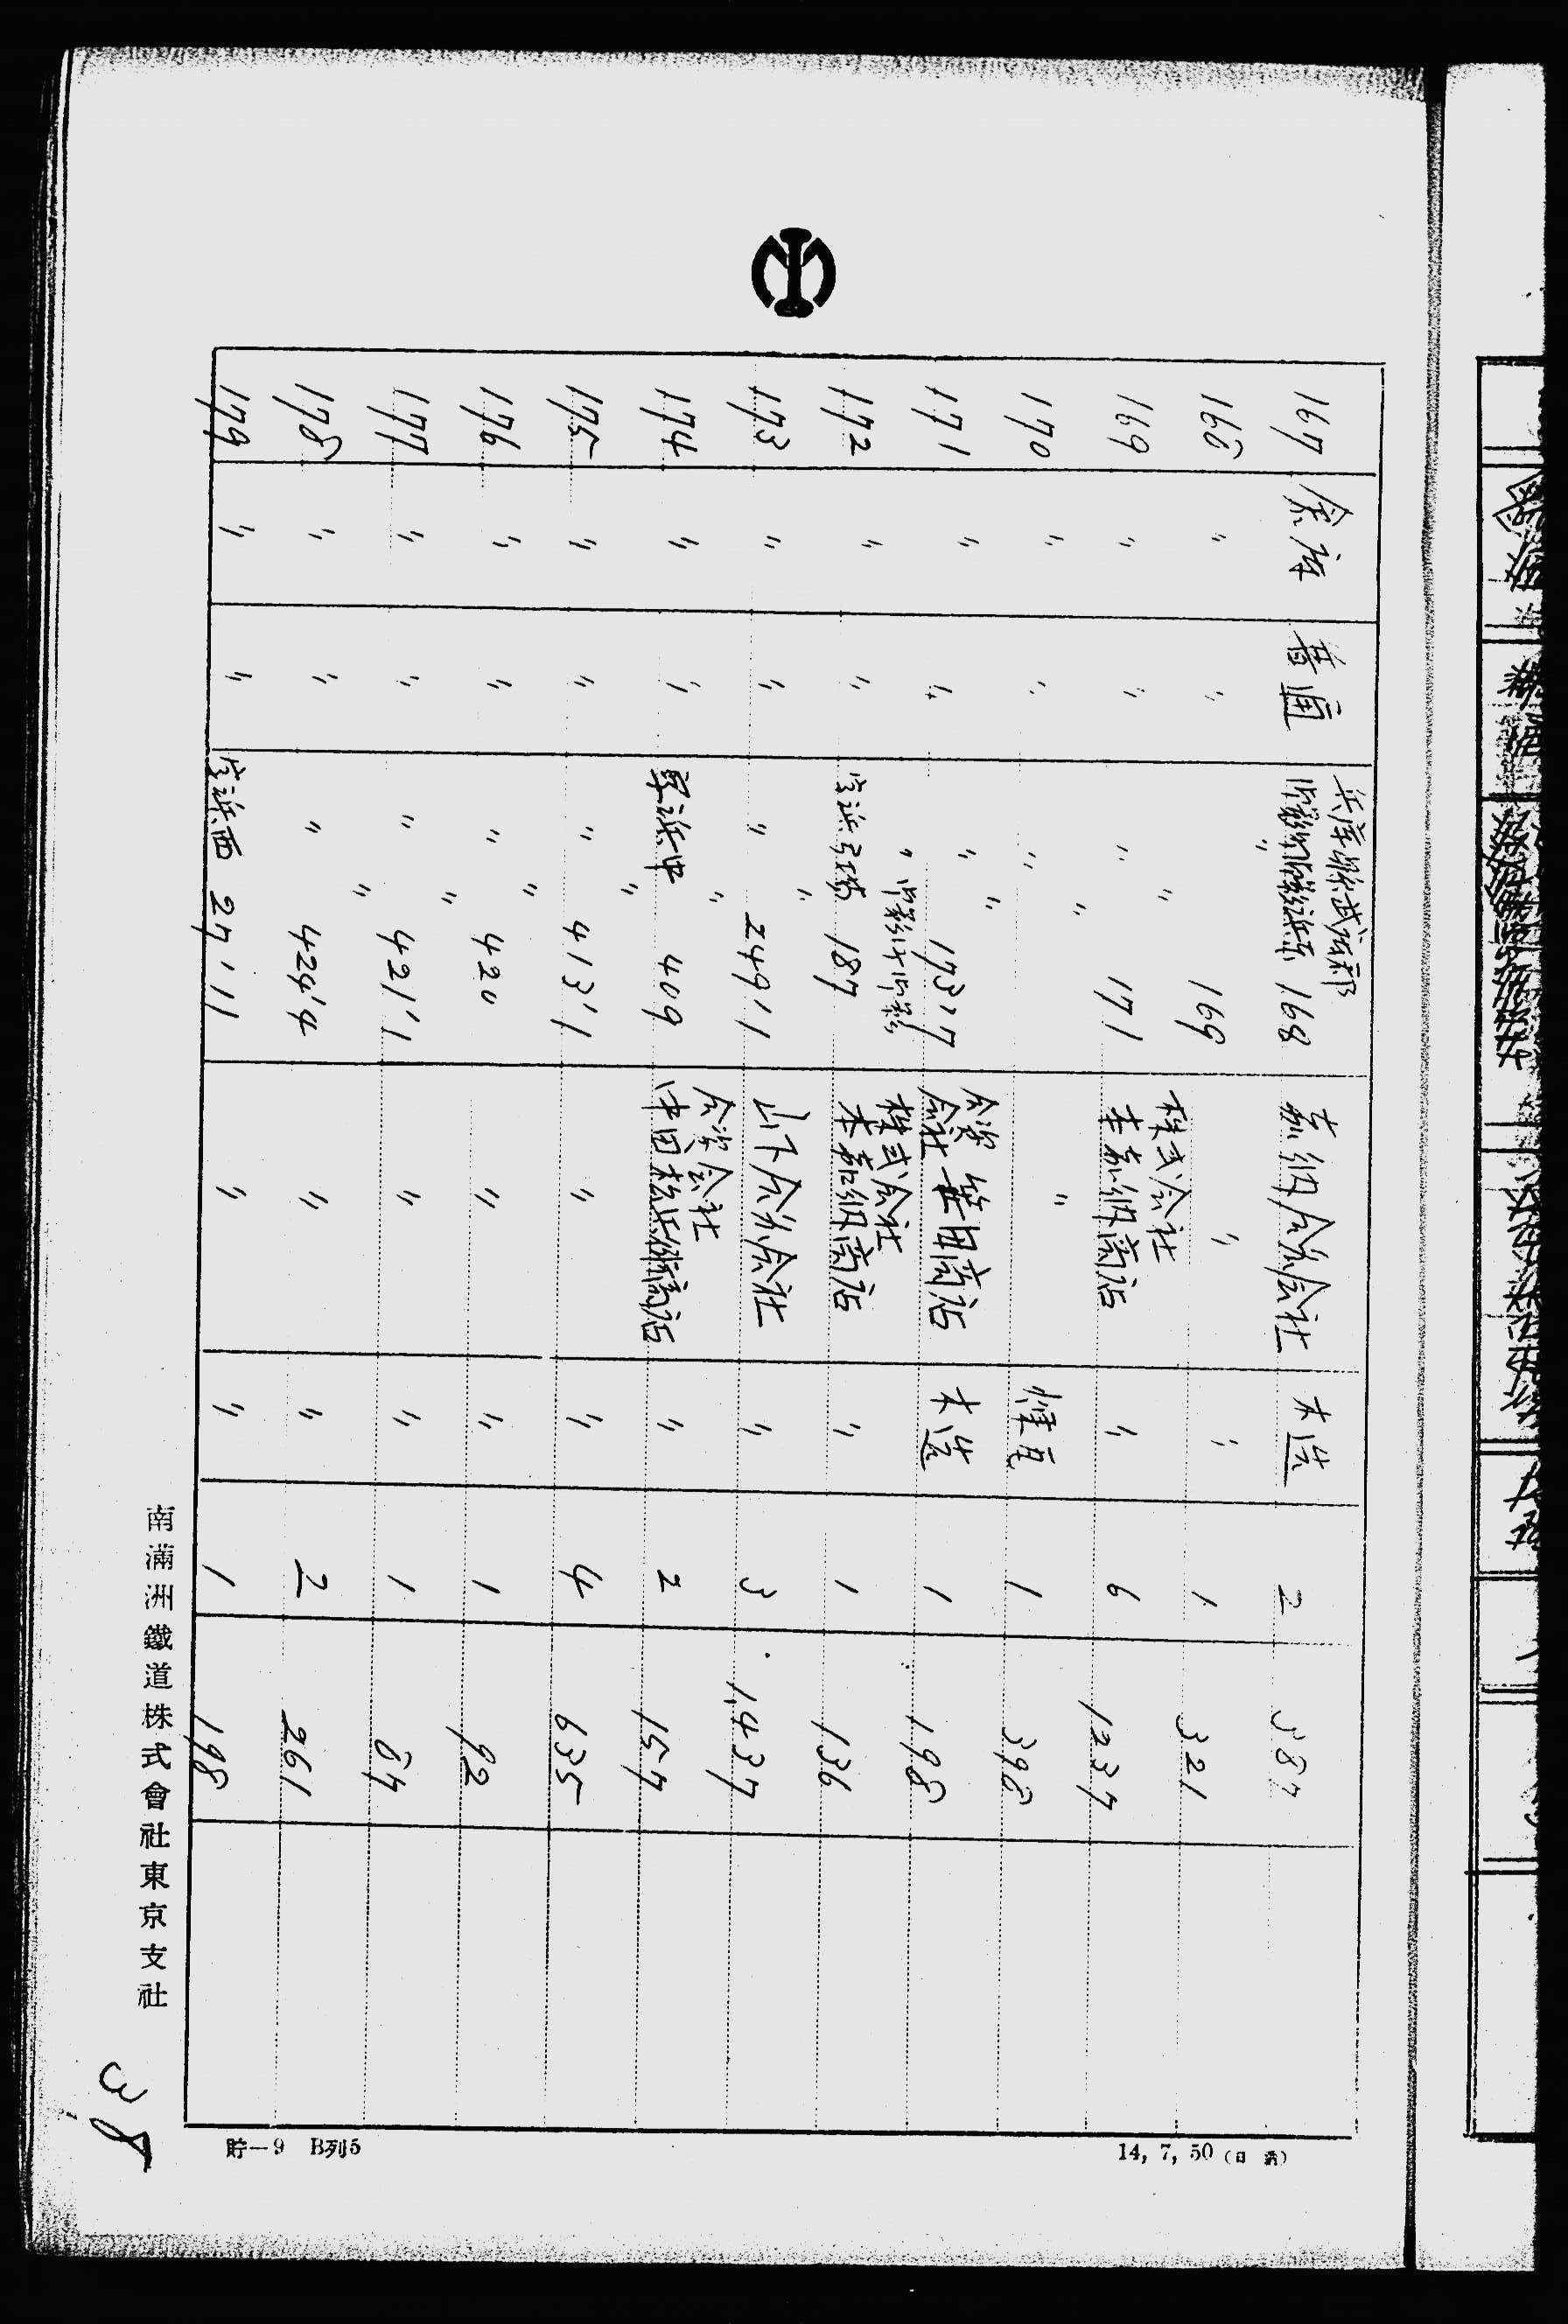 167 倉庫 普通 兵庫縣武庫郡 168 嘉納合名会社 木造 2 587
168 〃 〃 〃 169 〃 〃 1 321
169 〃 〃 〃 〃 171 株式会社 本嘉納商店 〃 6 1237
170 〃 〃 〃 〃 〃 煉瓦 1 398
171 〃 〃 〃 〃 173ノ7 合資会社 商店 木造 1 198
172 〃 〃 〃 187 株式会社 本嘉納商店 〃 1 136
173 〃 〃 〃 〃 249ノ1 山下合名会社 〃 3 1,437
174 〃 〃 〃 409 合資会社 商店 〃 2 157
175 〃 〃 〃 〃 413ノ1 〃 〃 4 635
176 〃 〃 〃 〃 420 〃 〃 1 92
177 〃 〃 〃 〃 421ノ1 〃 〃 1 87
178 〃 〃 〃 〃 424ノ4 〃 〃 2 261
179 〃 〃 27ノ11 〃 〃 1 198
南滿洲鐵道株式會社東京支社
38
貯—9 B列5
14, 7, 50